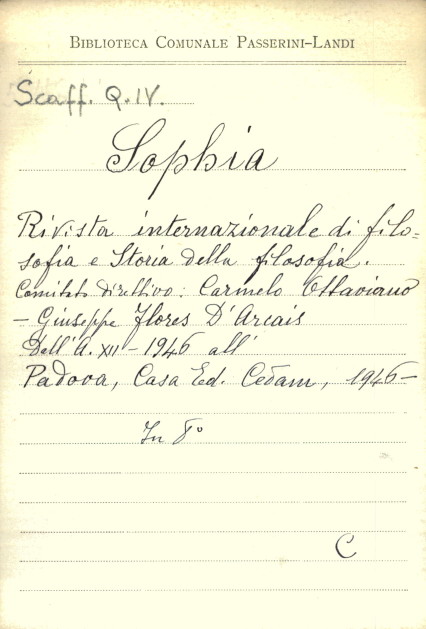 BIBLIOTECA COMUNALE PASSERINI-LANDI
Scaff. Q. IV.
Sophia
Rivista internazionale di filo=
sofia e Storia della filosofia.
Comitato direttivo: Carmelo Ottaviano
- Giuseppe Flores D'Arcais
Dall'A. XII - 1946 all'
Padova, Casa Ed. Cedam, 1946-
In 8°
C